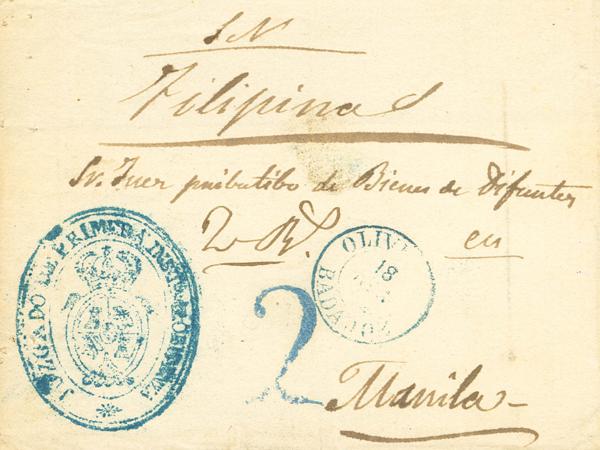 S.N
Filipinas
Sr. Juez pribatibo de Bienes de Difuntos
2 Rs. en
JUZGADO DE PRIMERA
OLIV
18
BADAJOZ
2
Manila